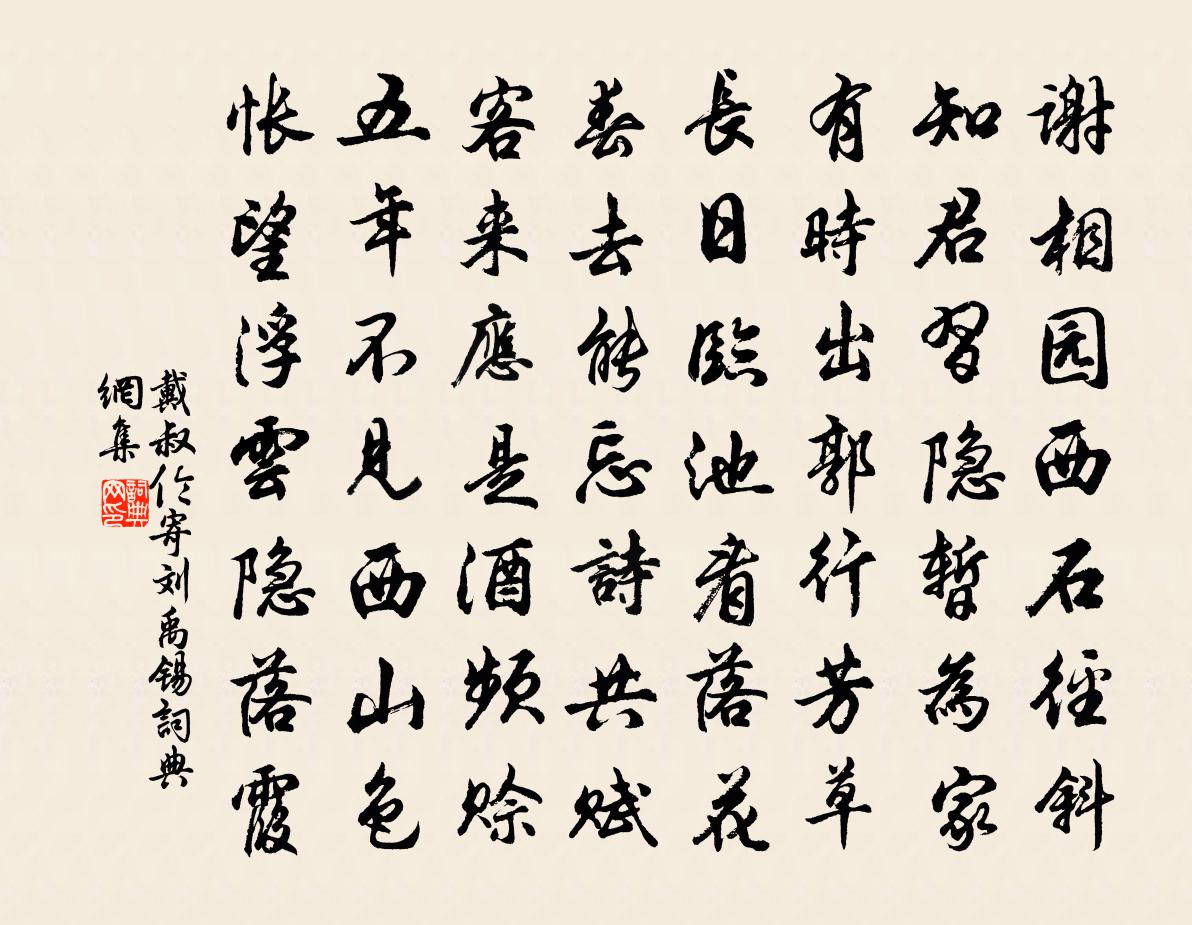 谢相园西石徑斜
知君習隐暫為家
有時出郭行芳草
長日臨池看落花
春去能忘詩共赋
客来應是酒频赊
五年不见西山色
怅望浮雲隐落霞
戴叔伦寄刘禹锡詞典
網集
詞典
网印